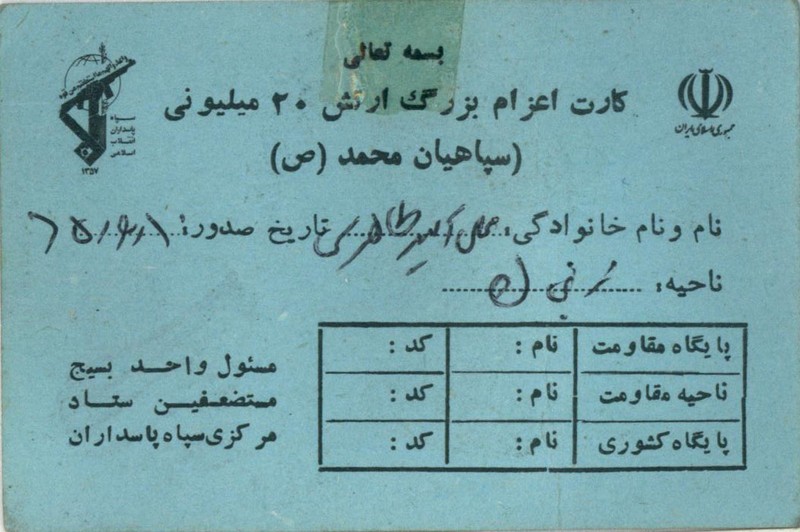 بسمه تعالی
کارت اعزام بزرگ ارتش ۲۰ میلیونی
(سپاهیان محمد (ص)
سپاه
پاسداران
انقلاب
اسلامی
۱۳۵۷
جمهوری اسلامی ایران
نام و نام خانوادگی: تاریخ صدور:
ناحیه:
پایگاه مقاومت نام: کد:
ناحیه مقاومت نام: کد:
پایگاه کشوری نام: کد:
مسئول واحد بسیج
مستضعفین ستاد
مرکزی سپاه پاسداران